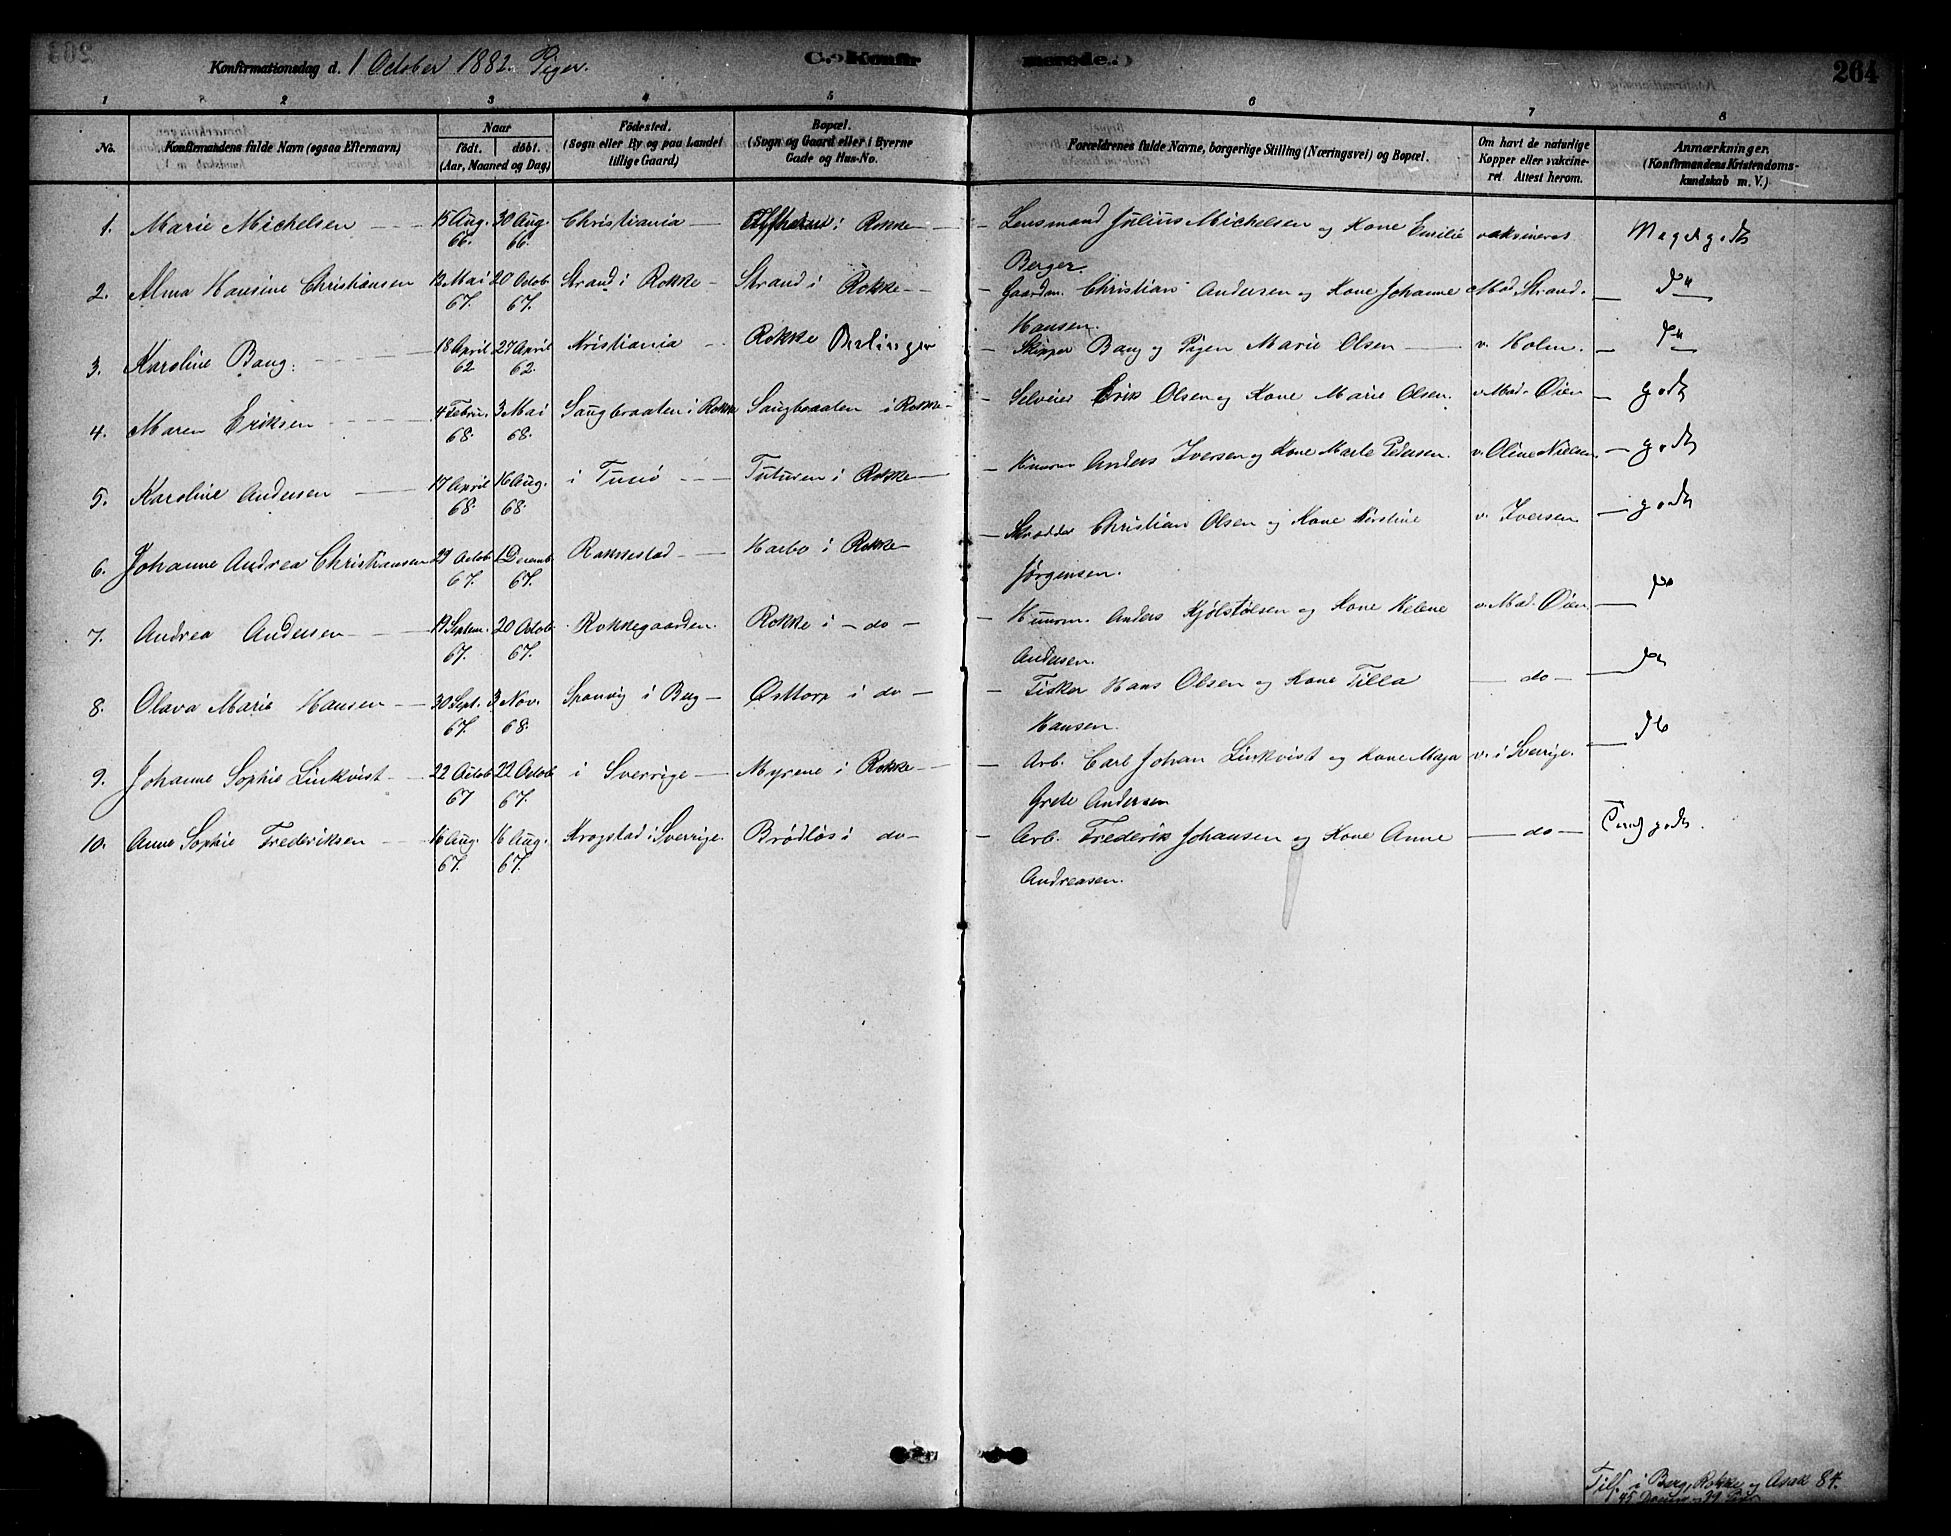 Konfirmationsdag d. 1 October 1882. Piger.
C. Konfir
merede.
264
1 2 3 4 5 6 7 8
No.
Konfirmandens fulde Navn (ogsaa Efternavn)
Naar
født. døbt.
(Aar, Maaned og Dag)
Fødested.
(Sogn eller By og paa Landet
tillige Gaard)
Bopæl.
(Sogn og Gaard eller i Byerne
Gade og Hus-No.
Forældrenes fulde Navne, borgerlige Stilling (Næringsvei) og Bopæl.
Om havt de naturlige
Kopper eller vakcine-
ret. Attest herom.
Anmærkninger,
(Konfirmandens Kristendoms-
kundskab m. V.)
1. Marie Michelsen 15 Aug. 66. 30 Aug. 66. Christiania i Rokke Lensmand Julius Michelsen og Kone Emilie vaksineret Meget godt
Berger.
2. Alma Hansine Christiansen 13 Mai 67. 20 Octob 67. Strand i Rokke Strand i Rokke Gaardm. Christian Andersen og Kone Johanne Mad. Strand. do
Hansen.
3. Karoline Bang. 18 April 62 27 April 62. Kristiania Rokke Skipper Bang og Pigen Marie Olsen v. Holm. do
4. Maren Eriksen 4 Febru. 68. 3 Mai 68. Saugbraaten i Rokke Saugbraaten i Rokke Selveier Erik Olsen og Kone Marie Olsen. v. Mad. Øien godt
5. Karoline Andersen 17 April 68. 16 Aug. 68. i Tunø Tuturen i Rokke Husm. Anders Iversen og Kone Marte Pedersen. v. Oline Nielsen godt
6. Johanne Andrea Christiansen 29 Octob 67. 1 Decemb 67. Rakkestad Harbo i Rokke Skrædder Christian Olsen og Kone Kirstine v. Iversen godt
Jørgensen.
7. Andrea Andersen 19 Septem. 67. 20 Octob 67. Rokkegaarden. Rokke i do Husm. Anders Kjølstølsen og Kone Helene v. Mad. Øien do
Andersen.
8. Olava Marie Hansen 30 Sept. 67. 3 Nov. 68. Sponvig i Berg Østtorp i do Fisker Hans Olsen og Kone Tilla do do
Hansen.
9. Johanne Sophie Linkvist 22 Octob 67 22 Octob 67. i Sverrige Myrene i Rokke Arb. Carl Johan Linkvist og Kone Maja v. i Sverrige. do
Grete Andersen
10. Anne Sophie Frederiksen 16 Aug. 67. 16 Aug. 67. Krogstad i Sverrige. Brødløs i do Arb. Frederik Johansen og Kone Anne do godt.
Andreasen.
Tils. i Berg, Rokke og Asak 84.
45 39 Piger